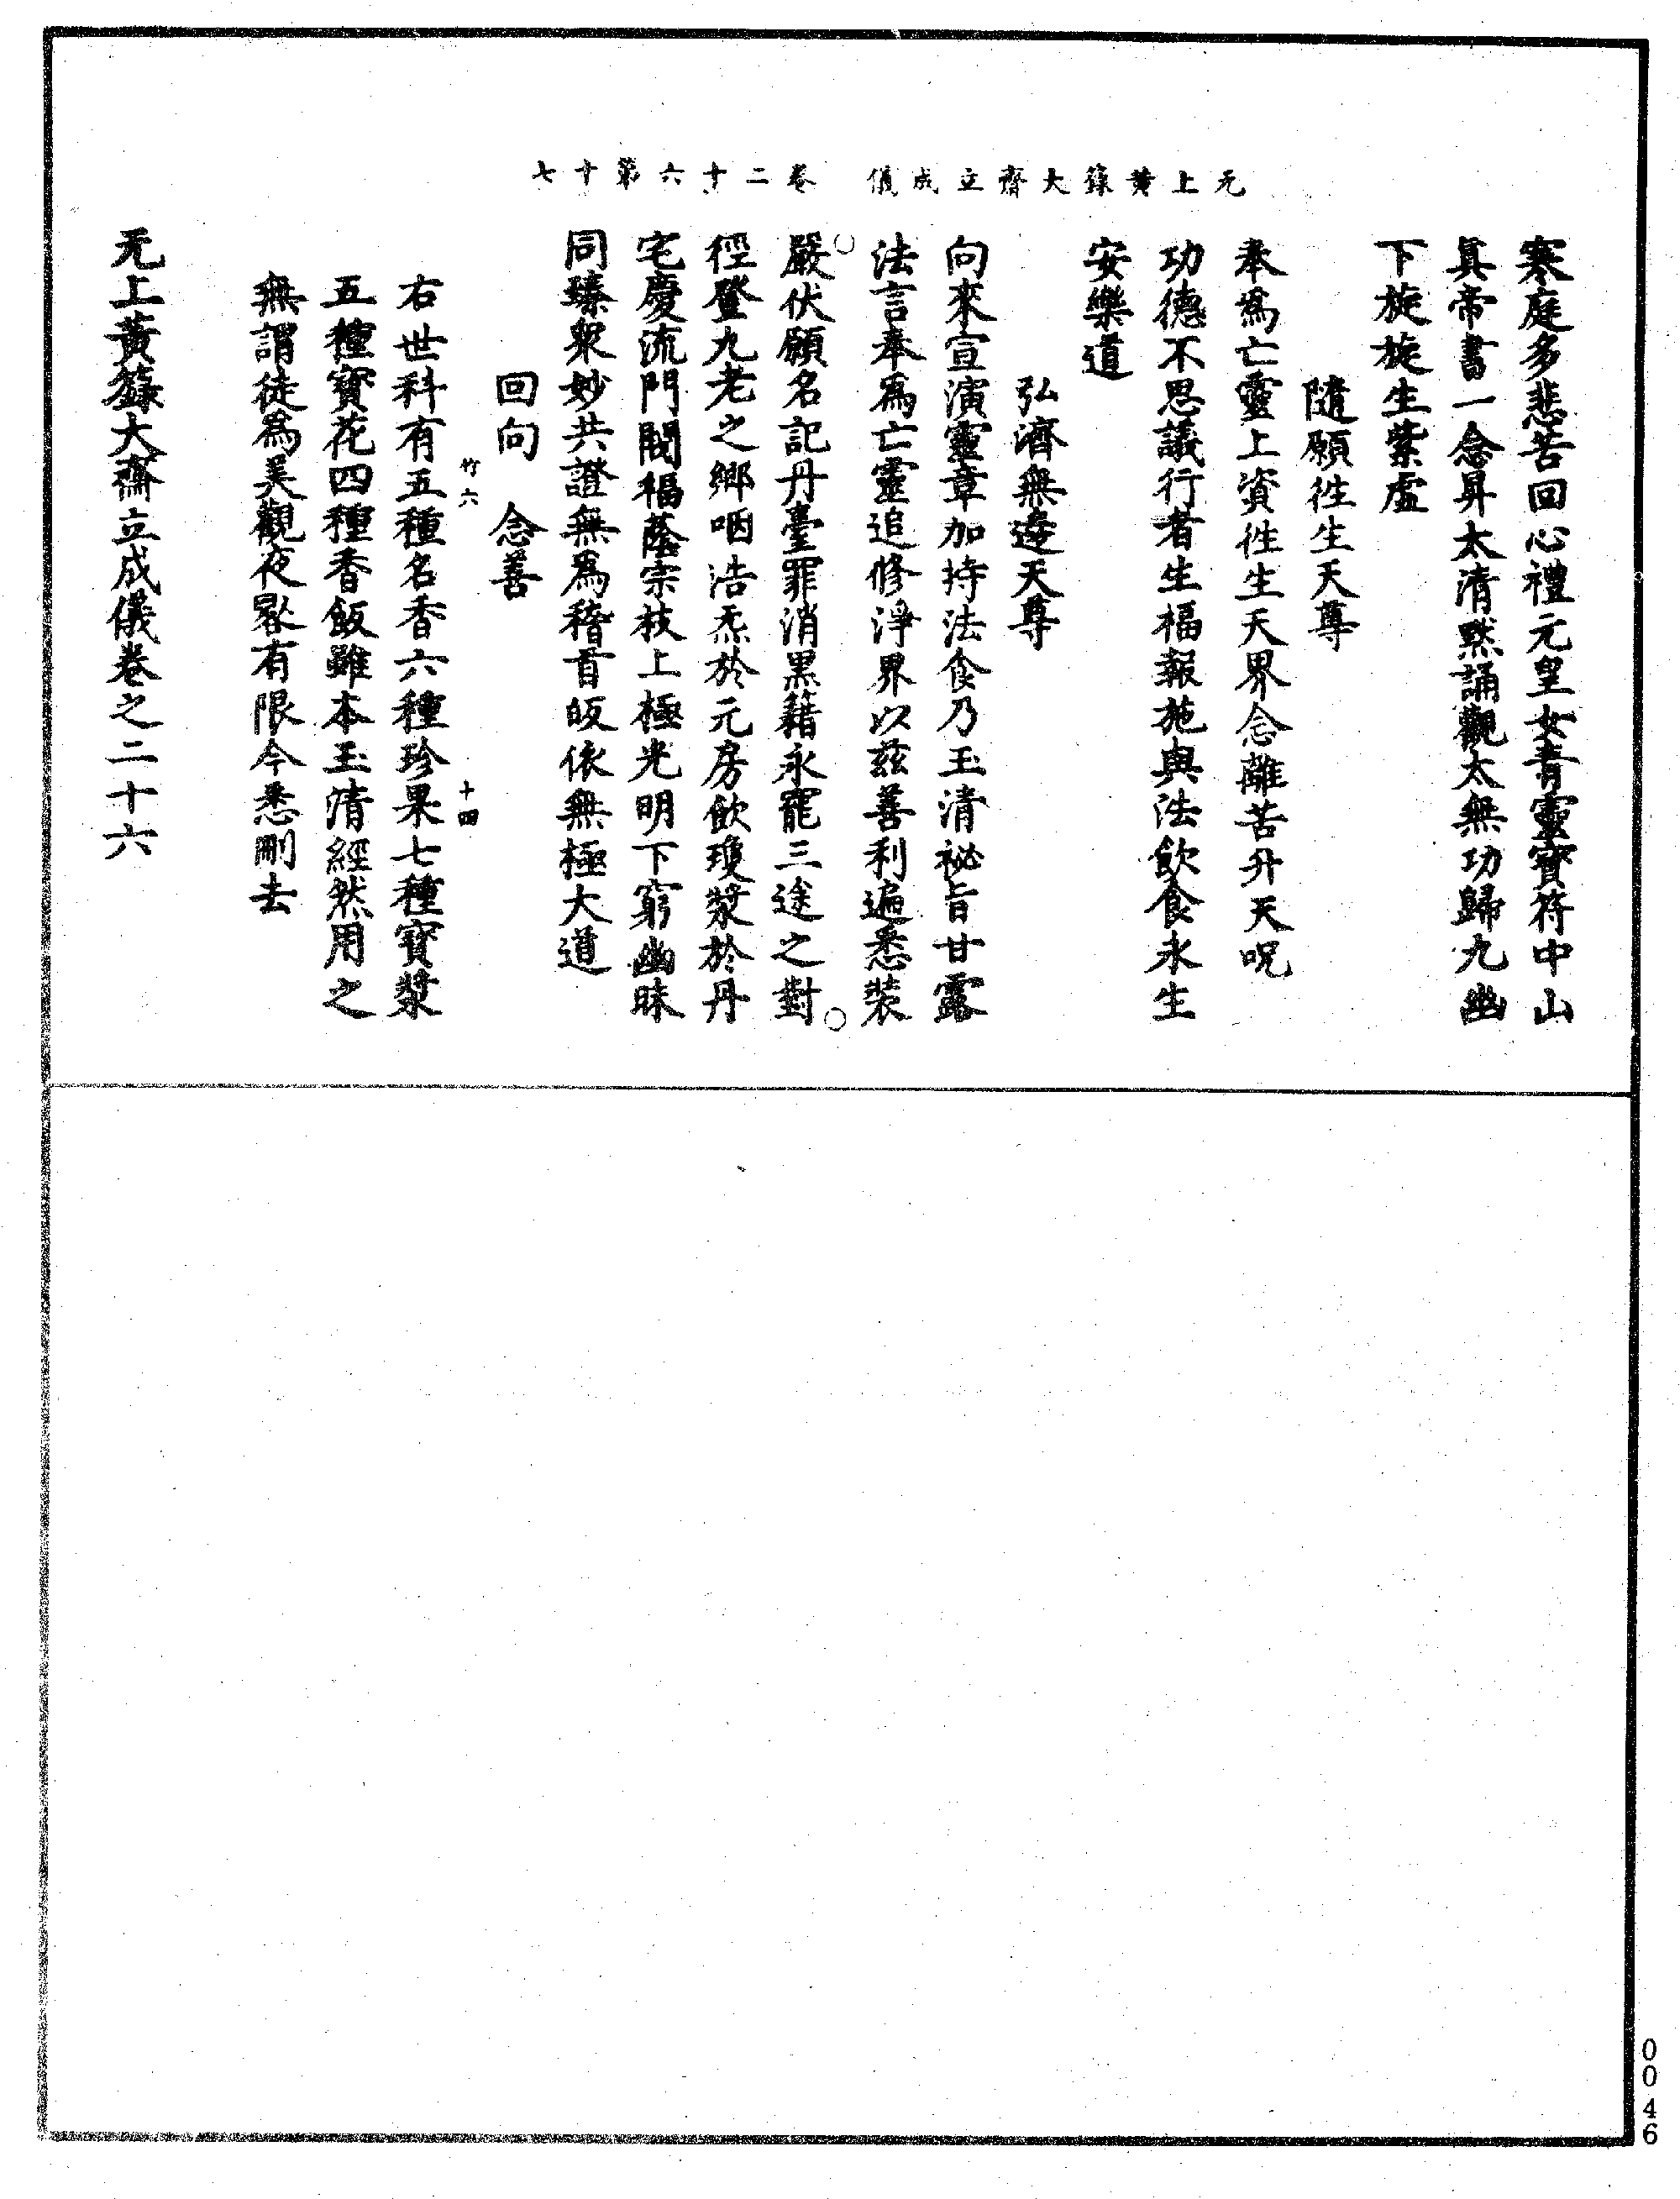 无上黃籙大齋立成儀　卷二十六第十七
寒庭多悲苦回心禮元皇女青靈寶符中山
眞帝書一念昇太清默誦觀太無功歸九幽
下旋旋生紫虛
隨願徃生天尊
奉爲亡靈上資徃生天界念離苦升天呪
功德不思議行者生福報施與法飲食永生
安樂道
弘濟無邊天尊
向來宣演靈章加持法食乃玉清祕旨甘露
法言奉爲亡靈追修淨界以兹善利遍悉裝
嚴伏願名記丹臺罪消黑籍永寵三途之對
徑登九老之鄉咽浩炁於元房飲瓊漿於丹
宅慶流門閥福蔭宗枝上極光明下窮幽昧
同臻衆妙共證無爲稽首皈依無極大道
回向　念善
竹六　十四
右世科有五種名香六種珍果七種寶漿
五種寶花四種香飯雖本玉清經然用之
無謂徒爲美觀夜晷有限今悉刪去
无上黃籙大齋立成儀卷之二十六
0046